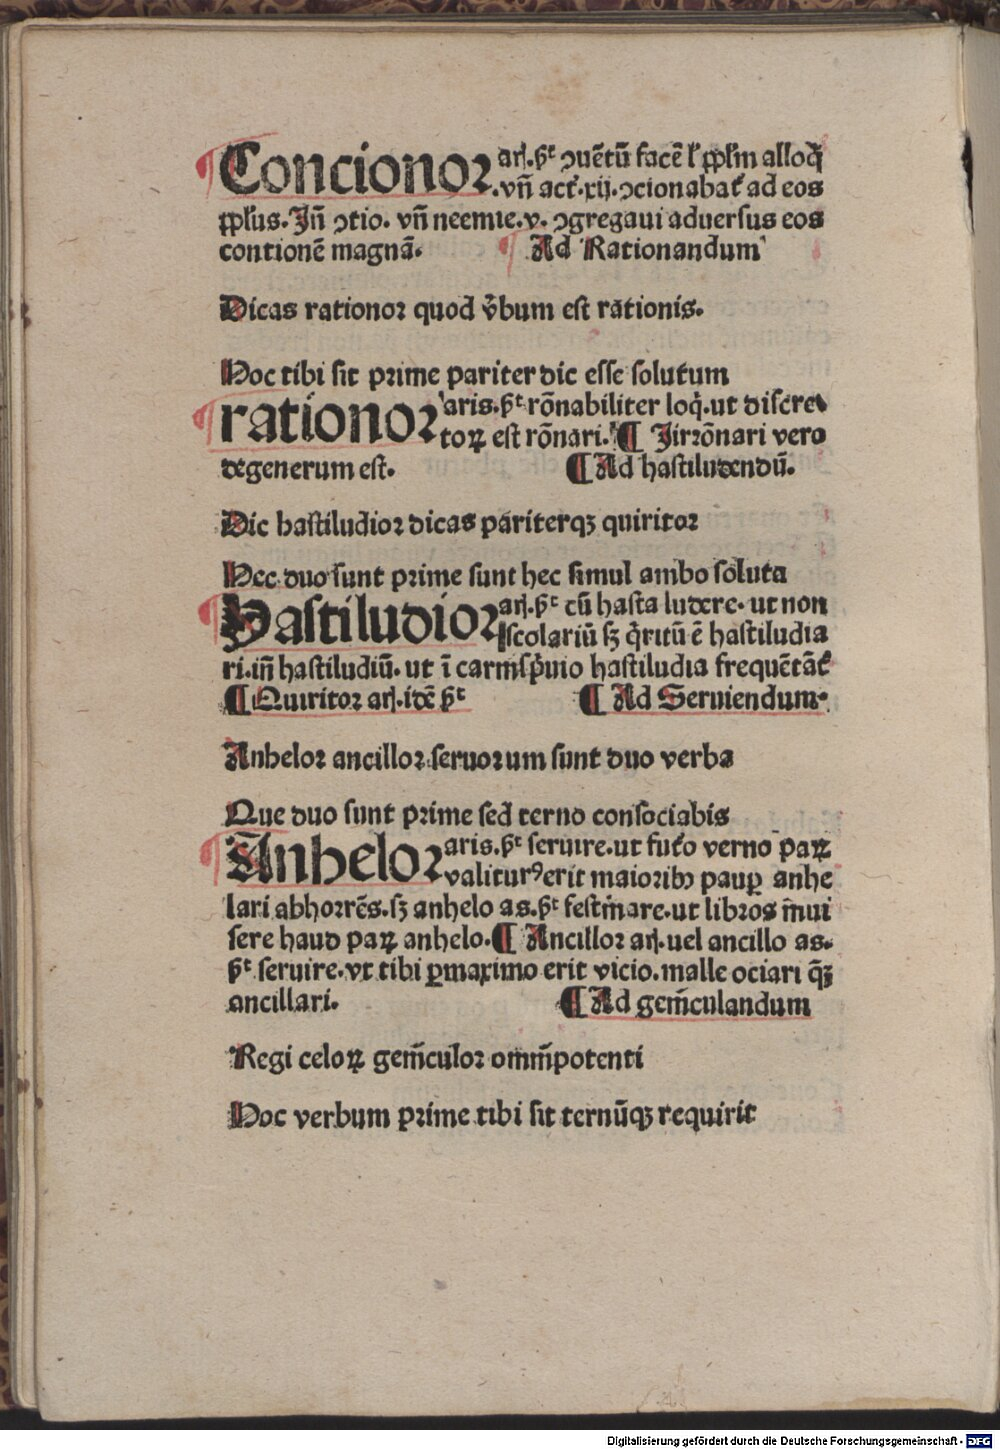 Concionoꝛ arį.h̄ᵗ ↄuētū facē ł ꝓpłm alloq̄
.vñ act᷒.xij.ↄcionabat᷒ ad eos
ꝓpłus.Jñ ↄtio. vñ neemie.v. ↄgregaui aduerſus eos
contionē magnā. Ad Rationandum
Dicas rationoꝛ quod v̄bum eſt rationis.
Hoc tibi ſit pꝛime pariter dic eſſe ſolutum
rationoꝛ aris.h̄ᵗ rōnabiliter loq̄.ut diſcre
toꝝ eſt rōnari. ¶ Jirrōnari vero
degenerum eſt. ¶ Ad haſtiludendū.
Dic haſtiludioꝛ dicas pariterqꝫ quiritoꝛ
Hec duo ſunt pꝛime ſunt hec ſimul ambo ſoluta
Haſtiludioꝛ arį.h̄ᵗ cū haſta ludere. ut non
ſcolariū ſꝫ q̄ritū ē haſtiludia
ri.iñ haſtiludiū. ut ī carmſp̄uio haſtiludia frequētāt᷒
¶ Quiritoꝛ arį.idē h̄ᵗ ¶ Ad Seruiendum.
Anheloꝛ ancilloꝛ ſeruoꝛum ſunt duo verba
Que duo ſunt pꝛime ſed terno conſociabis
Anheloꝛ aris.h̄ᵗ ſeruire.ut futo verno paꝝ
valiturꝰ erit maioribꝫ pauꝑ anhe
lari abhoꝛrēs.ſꝫ anhelo as.h̄ᵗ feſtinare.ut libꝛos m̄ui
ſere haud paꝝ anhelo. ¶ Ancilloꝛ arį.uel ancillo as.
h̄ᵗ ſeruire.vt tibi ꝑmaximo erit vicio.malle ociari q̄ꝫ
ancillari. ¶ Ad gem̄culandum
Regi celoꝝ gem̄culoꝛ omm̄potenti
Hoc verbum pꝛime tibi ſit ternūqꝫ requirit
Digitalisierung gefördert durch die Deutsche Forschungsgemeinschaft - DFG